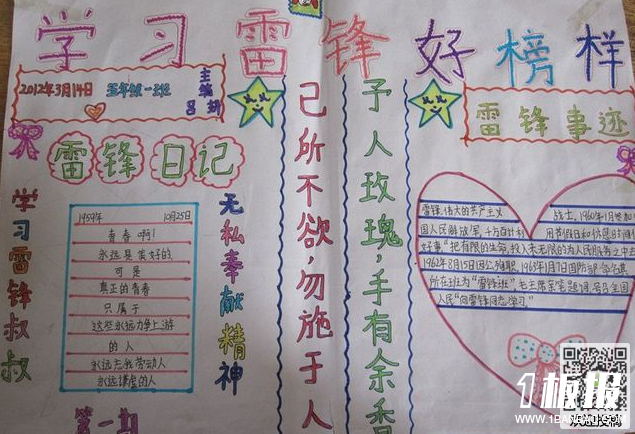 学习雷锋好榜样
2012年3月14日 五年级一班
主编
雷锋日记
学习雷锋叔叔
1959年 10月25日
青春啊!
永远是美好的
可是
真正的青春
只属于
这些永远力争上游
的人
永远忘我劳动人
永远谦虚的人
第一期
无私奉献精神
己所不欲,勿施于人
予人玫瑰,手有余香
雷锋事迹
雷锋,伟大的共产主义 战士,1960年1月参加
国人民解放军,
好事"把有限的生命,投入无限的为人民服务之中去
1962年8月15日因公殉职,1963年1月7日国防部
所在班为"雷锋班"毛主席亲笔题词,号召全国
人民"向雷锋同志学习"
1板报
WWW.1BANBAO.COM
欢迎投稿